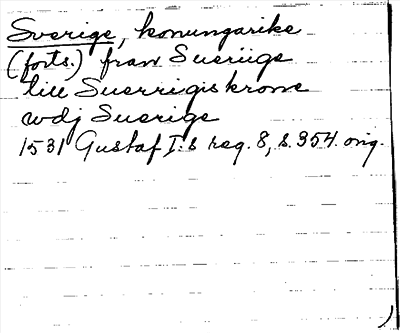 Sverige, konungarike
(forts.) fran Sueriige
till Suerrigis krone
wdj Suerige
1531 Gustaf I:s reg. 8, s. 354. orig.